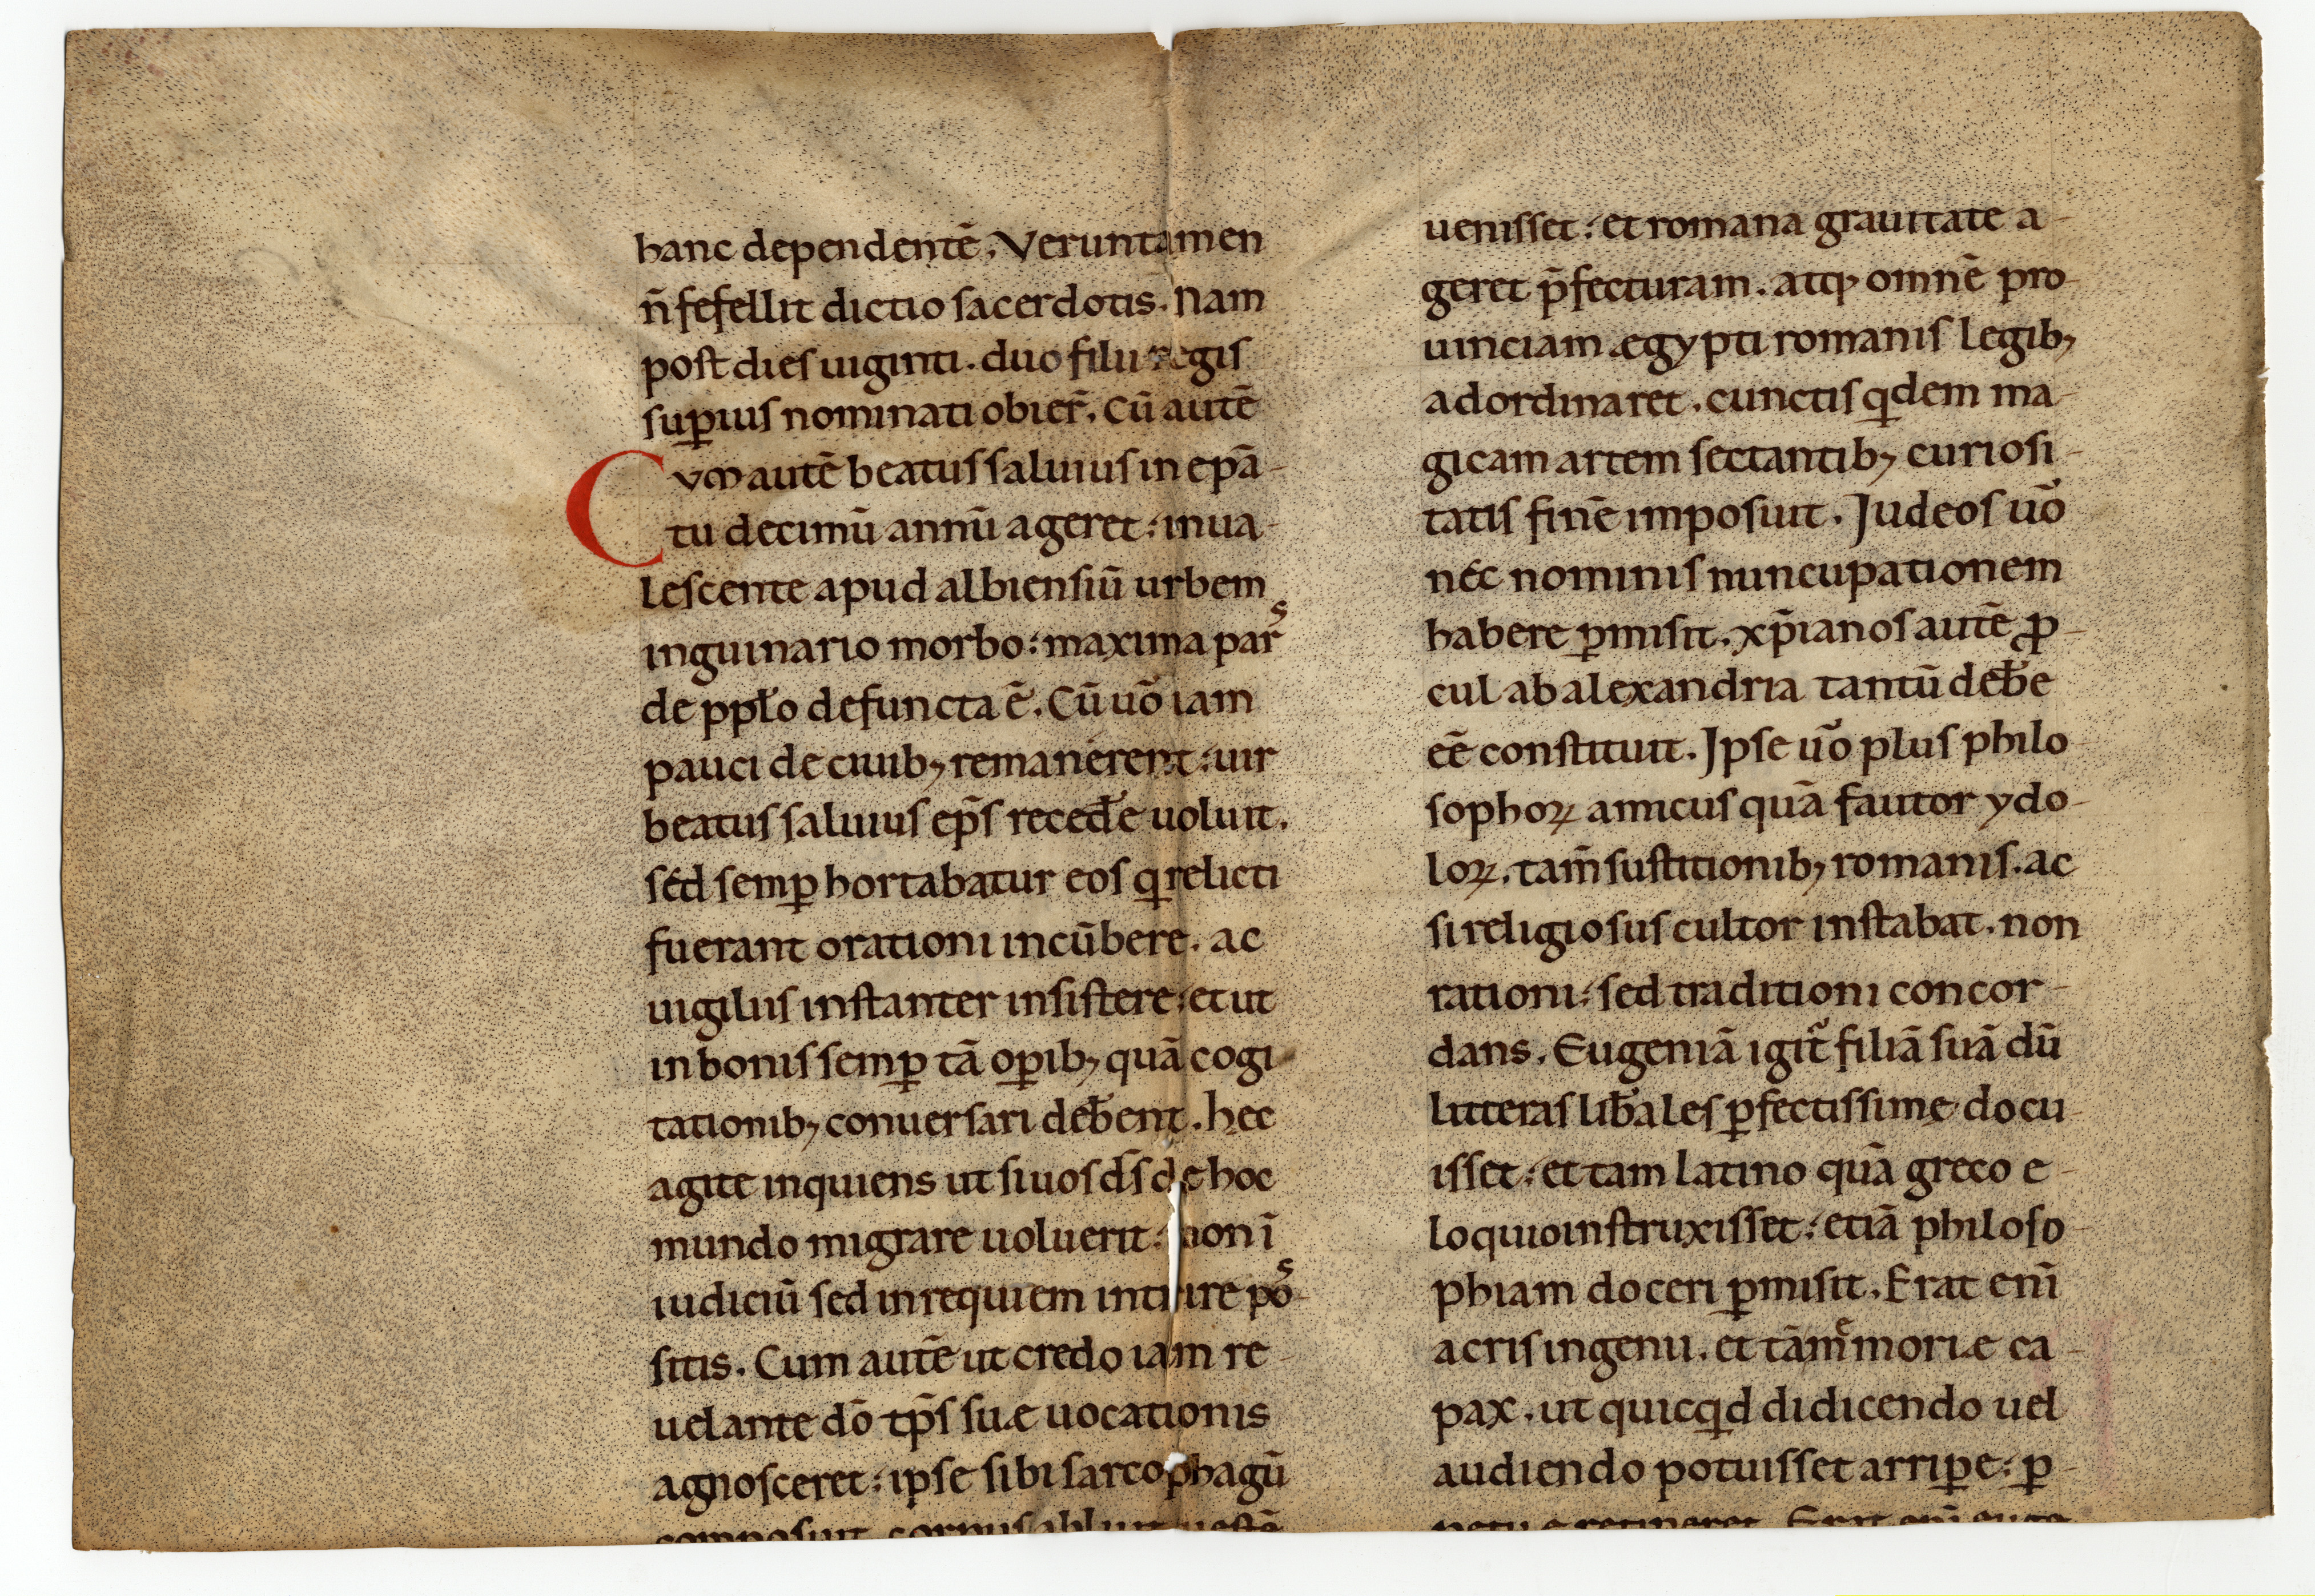 hanc dependentē. Veruntamen
n̄ fefellit dictio sacerdotis. Nam
post dies uiginti. duo filii regis
suꝑius nominati obier̄. Cū autē
Cum autē beatus saluius in ep̄a-
tu decimū annū ageret: inua-
lescente apud albiensiū urbem
inguinario morbo: maxima pars
de ppl̄o defuncta ē. Cū uo᷆ iam
pauci de ciuib; remanerent: uir
beatus saluius ep̄s reced̄e uoluit.
séd semꝑ hortabatur eos q̱ relicti
fuerant orationi incūbere. ac
uigiliis instanter insistere: et ut
in bonis semꝑ tā oꝑib; quā cogi-
tationib; conuersari deb̄ent. hec
agite inquiens ut si uos d̄s de hoc
mundo migrare uoluerit: non ī
iudiciū sed in requiem int ire pos-
sitis. Cum autē ut credo iam re-
uelante dō tp̄s suæ uocationis
agnosceret: ipse sibi sarcophagū
composuit. corpus abluit uestē
uenisset: et romana grauitate a-
geret p̄fecturam. atq; omnē pro-
uinciam ægypti romanis legib;
adordinaret. cunctis q̱dem ma-
gicam artem sectantib; curiosi-
tatis finē imposuit. Judeos uō
néc nominis nuncupationem
habere ꝑmisit. xp̄ianos autē ꝓ-
cul ab alexandria tantū deb̄e
eē constituit. Jpse uō plus philo-
sophoꝝ amicus quā fautor ydo-
loꝝ. tam̄ sustitionib; romanis. ac
si religiosus cultor instabat. non
rationi: sed traditioni concor-
dans. Eugeniā igit᷑ filiā suā dū
litteras lib̄ales ꝑfectissime docu-
isset: et tam latino quā greco e-
loquio instruxisset: etiā philoso-
phiam doceri ꝑmisit. Erat enī
acris ingenii. et tā memoriæ ca-
pax. ut quicq̱d didicendo uel
audiendo potuisset arriꝑe: ꝑ-
petue retineret. Erat enī